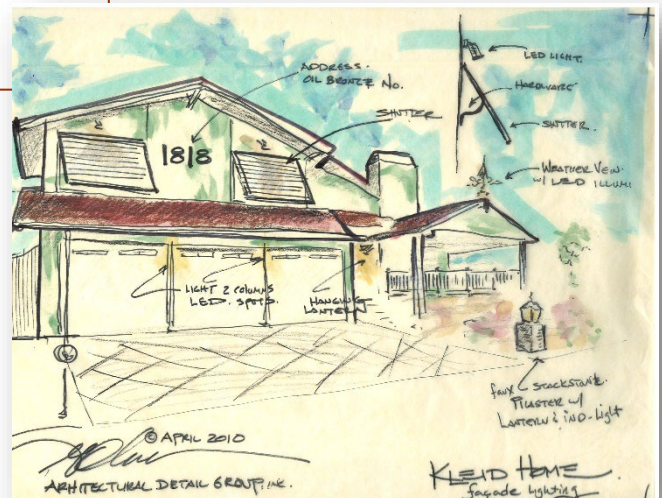 ADDRESS.
OIL BRONZE No.
SHTTER
1818
LED LIGHT.
HARDWARE
SHTTER.
WEATHER VEIN
W/ LED ILLUMI
LIGHT 2 COLUMNS
LED. SPOTS.
HANGING
LANTERN
faux STACKSTONE.
PILASTER W/
LANTERN & IND-Light
© APRIL 2010
ARHITECTURAL DETAIL GROUP, INC.
KLEID HOME.
façade lighting